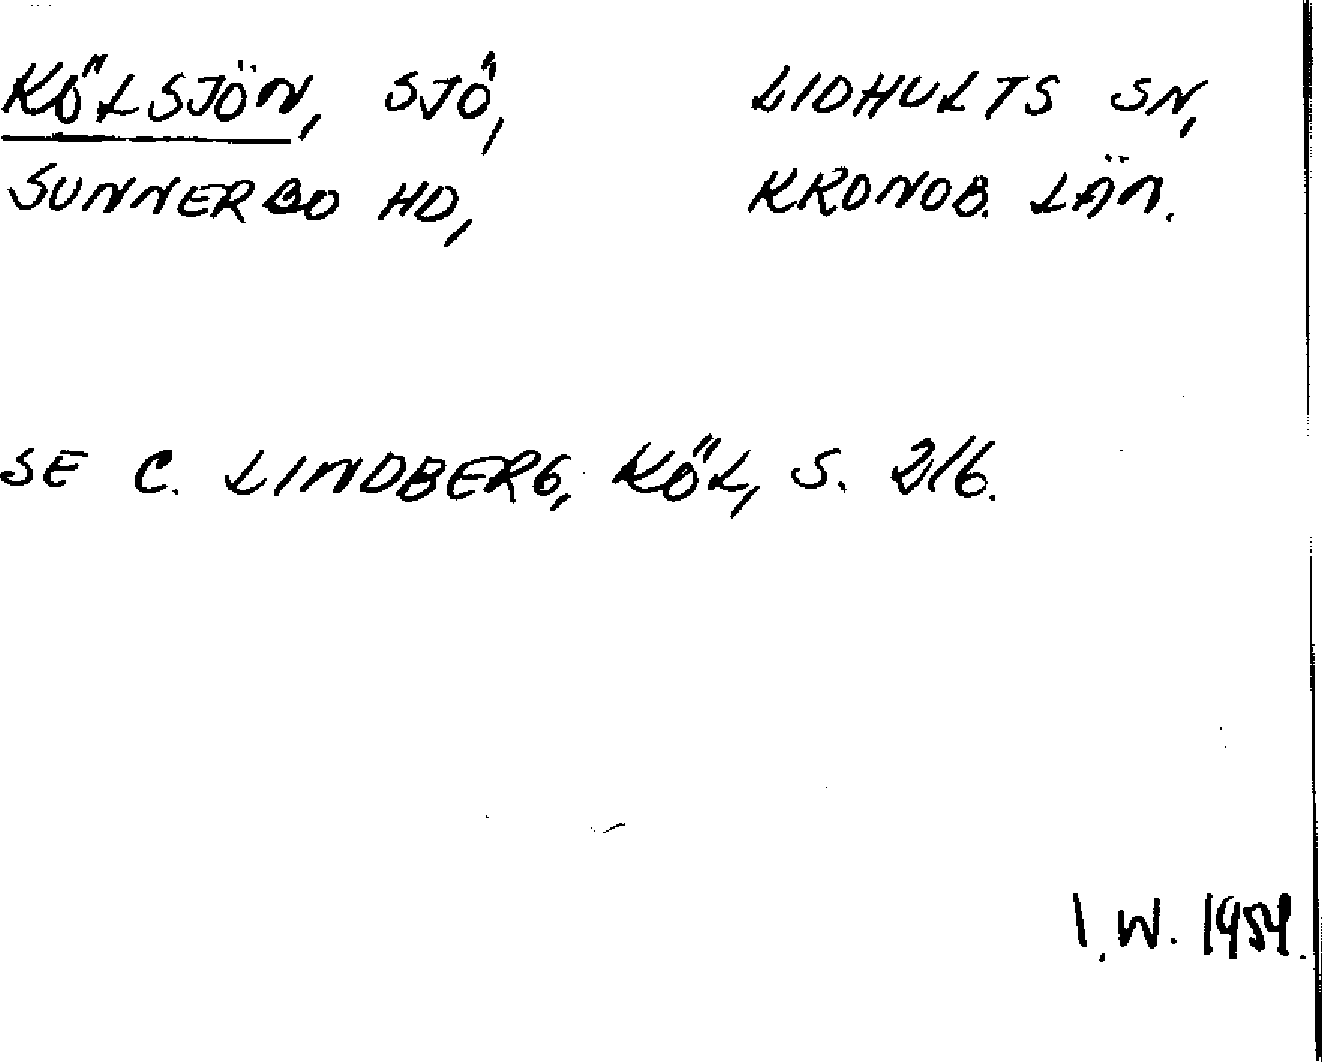 KÖLSJÖN, SJÖ, LIDHULTS SN,
SUNNERBO HD, KRONOB. LÄN.
SE C. LINDBERG, KÖL, S. 216.
I.W. 1954.